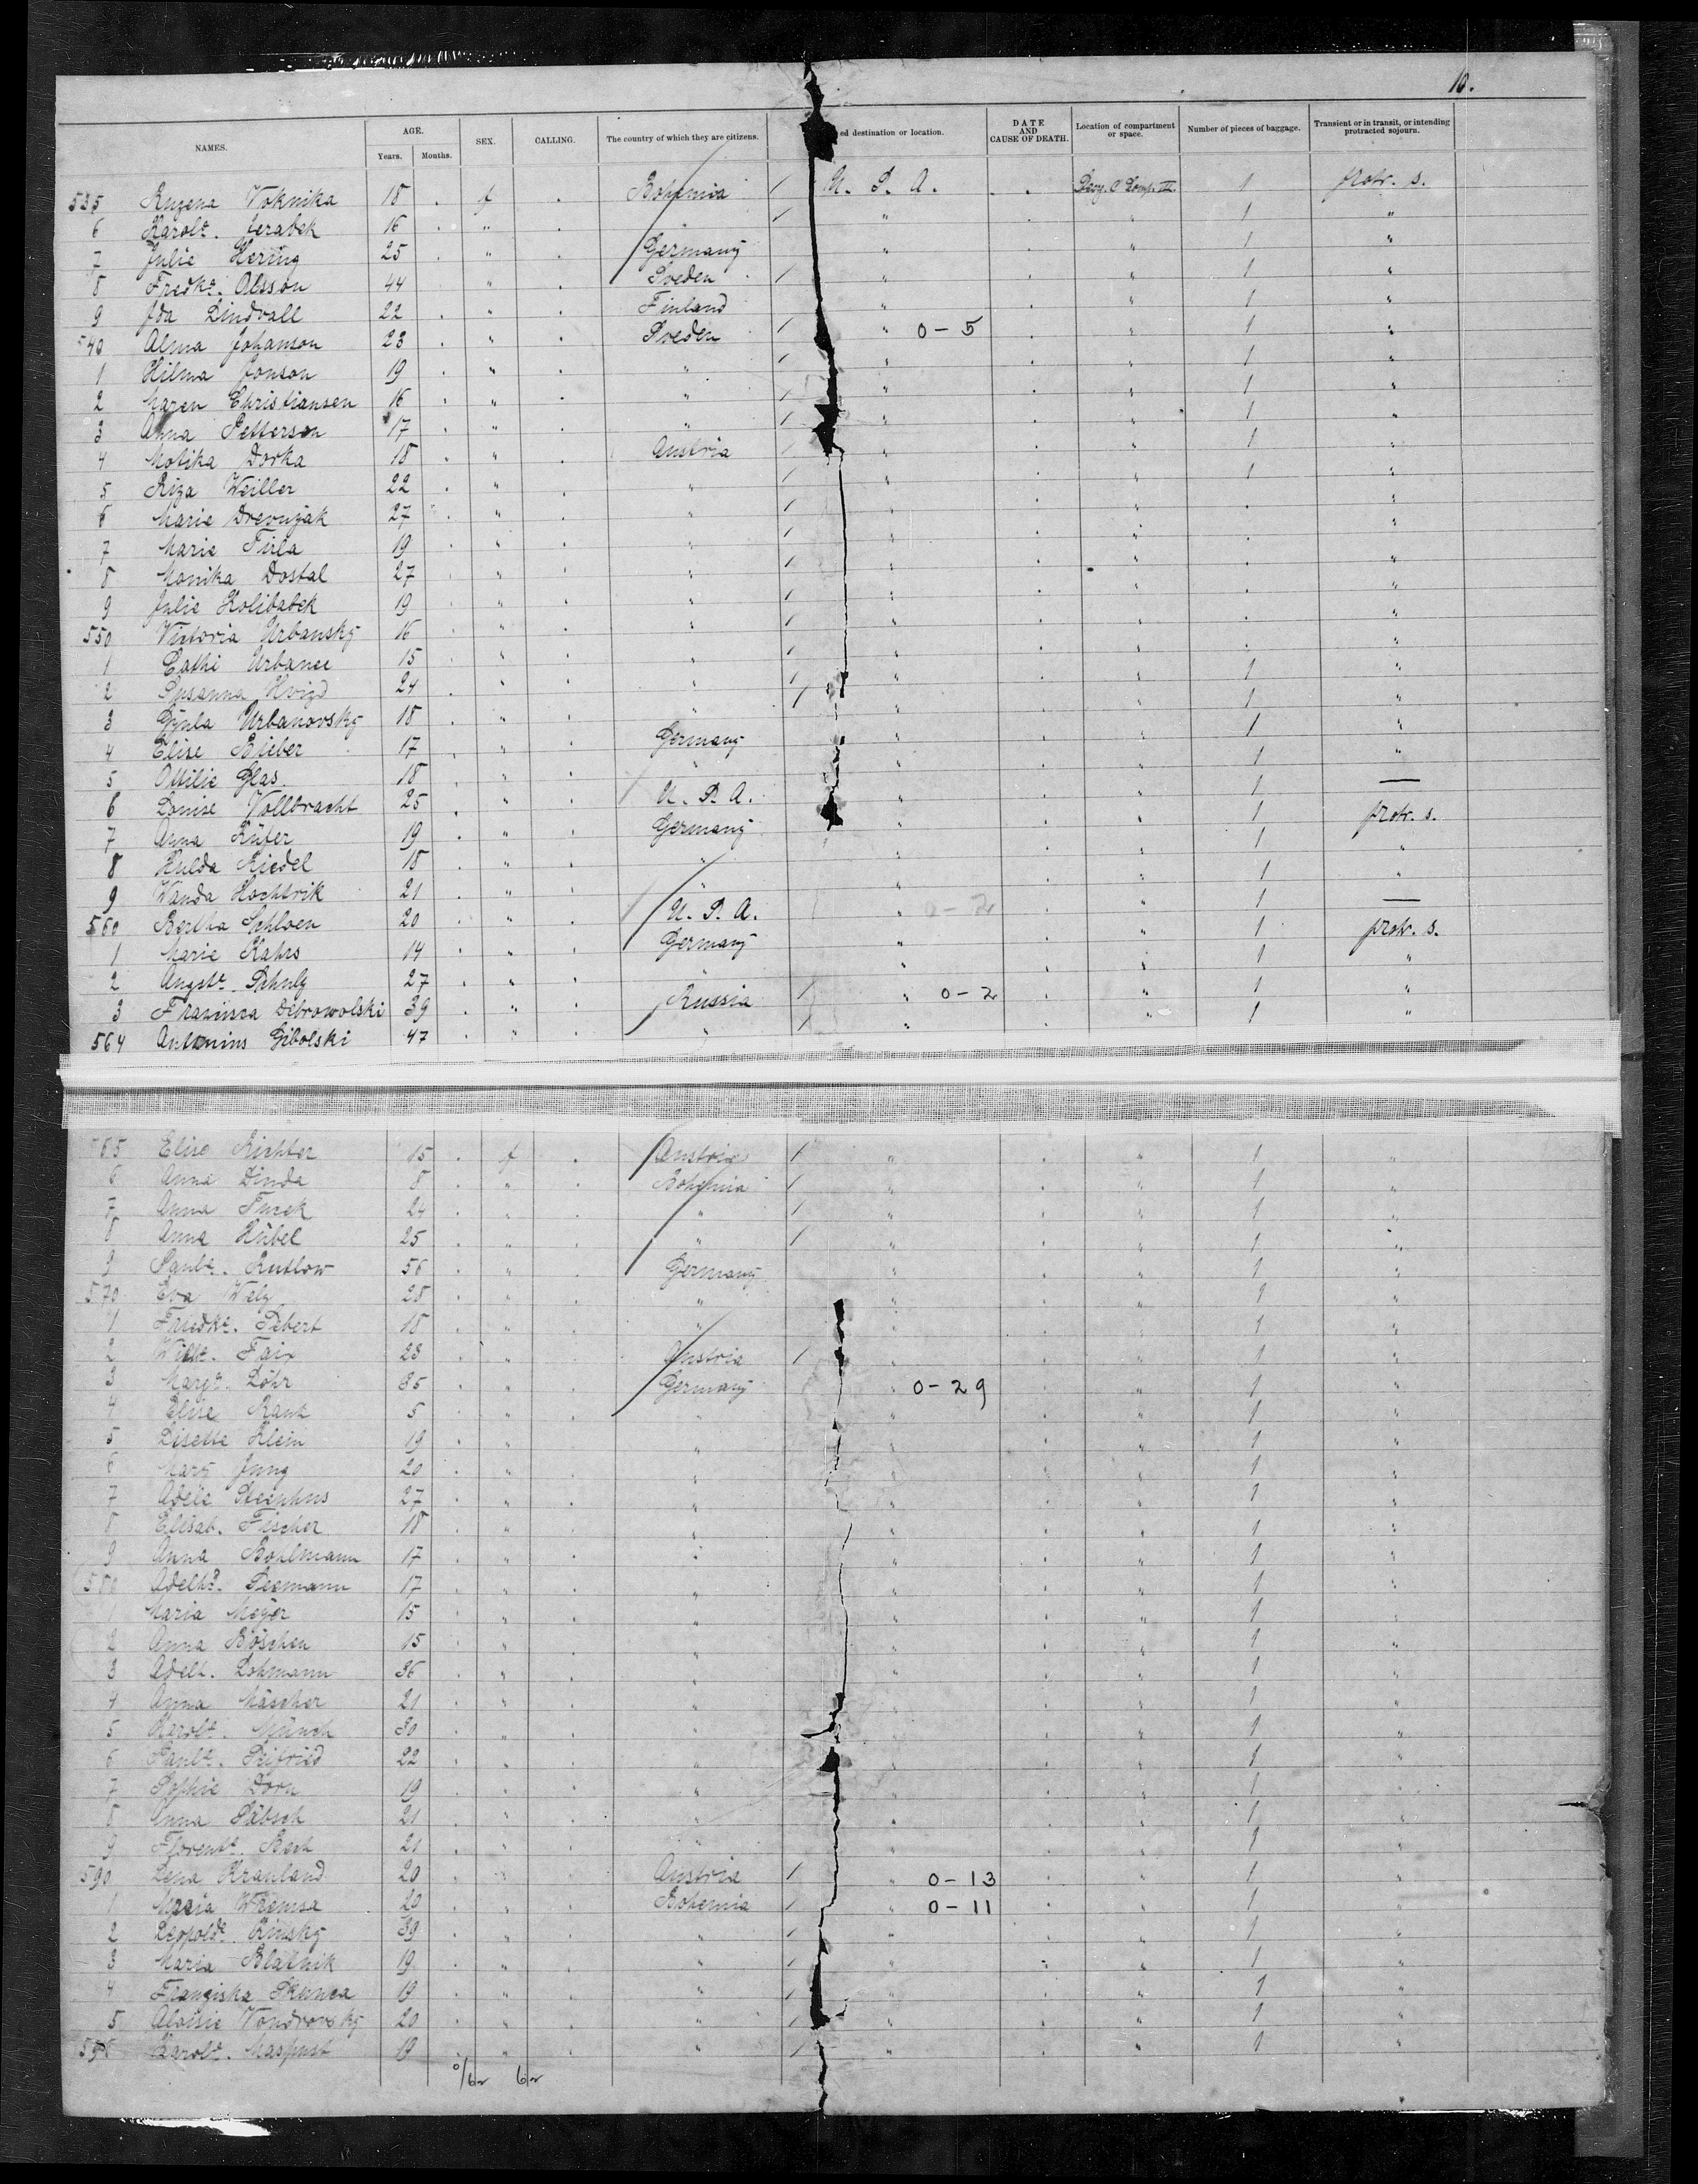 10.
NAMES. AGE. SEX. CALLING. The country of which they are citizens. ed destination or location. DATE AND CAUSE OF DEATH. Location of compartment or space. Number of pieces of baggage. Transient or in transit, or intending protracted sojourn.
Years. Months.
535 Ruzena Voknika 18 f Bohemia / U. S. A. Comp. III. 1 protr. s.
6 Karolᵉ. Jerabek 16 " / " " 1 "
7 Julie Hering 25 " Germany " " 1 "
8 Fredkᵉ. Olsson 44 " Sveden / " " 1 "
9 Ida Lindvall 22 " Finland " " 1 "
540 Alma Johanson 23 " Sveden / " 0-5 " 1 "
1 Hilma Jonson 19 " " / " " 1 "
2 Maren Christiansen 16 " " / " " 1 "
3 Anna Petterson 17 " " / " " 1 "
4 Motika Dorka 18 " Austria / " " 1 "
5 Riza Weiller 22 " " / " " 1 "
6 Marie Drevnjak 27 " " / " " "
7 Marie Firla 19 " " / " " "
8 Monika Dostal 27 " " / " " "
9 Julie Kolibabek 19 " " / " " "
550 Victoria Urbansky 16 " " / " " "
1 Cathi Urbanec 15 " " / " " "
2 Susanna Hvizd 24 " " / " " 1 "
3 Urbanovsky 18 " " / " " 1 "
4 Elise Bieber 17 " Germany " " 1 "
5 Ottilie Glas 18 " " " " 1 "
6 Louise Vollbracht 25 " U. S. A. " " 1 —
7 Anna Küfer 19 " Germany " " 1 protr. s.
8 Hulda Riedel 18 " " " " 1 "
9 Wanda 21 " " " " 1 "
560 Bertha Schloen 20 " U. S. A. " 0-2 " 1 —
1 Marie Kahrs 14 " Germany " " 1 protr. s.
2 Augstᵉ. 27 " " " " 1 "
3 Debrowolski 39 " Russia / " 0-2 " 1 "
564 Antonins Gibolski 47 " " / " " 1 "
565 Elise Richter 15 f Austria / " " 1 "
6 Anna Dinda 8 " Bohemia / " " 1 "
7 Anna Turek 24 " " / " " 1 "
8 Anna Hübel 25 " " / " " 1 "
9 Paulᵉ. Rutlow 56 " Germany " " 1 "
570 Eva Welz 28 " " " " 1 "
1 Friedkᵉ. Sebert 18 " " " " 1 "
2 Wilhᵉ. Faix 28 " Austria / " " 1 "
3 Margᵉ. Löhr 35 " Germany " 0-29 " 1 "
4 Elise 5 " " " " 1 "
5 Lisette Klein 19 " " " " 1 "
6 Jung 20 " " " " 1 "
7 Adele Steenhus 27 " " " " 1 "
8 Elisab. Fischer 18 " " " " 1 "
9 Anna Bohlmann 17 " " " " 1 "
580 Adelhᵈ. Seemann 17 " " " " 1 "
1 Maria Meyer 15 " " " " 1 "
2 Anna Böschen 15 " " " " 1 "
3 Adelh. Lohmann 36 " " " " 1 "
4 Anna Mäscher 21 " " " " 1 "
5 Karolᵉ. Münch 30 " " " " 1 "
6 Paulᵉ. Seifried 22 " " " " 1 "
7 Sophie Dorn 19 " " " " 1 "
8 Anna Päbsch 21 " " " " 1 "
9 Florentᵉ. 21 " " " " 1 "
590 Lena Kranland 20 " Austria / " 0-13 " 1 "
1 Maria 20 " Bohemia / " 0-11 " 1 "
2 Leopoldᵉ. Kinsky 39 " " / " " 1 "
3 Maria Blatnik 19 " " / " " 1 "
4 Franziska 19 " " / " " 1 "
5 Aloisie Vondrovsky 20 " " / " " 1 "
596 Karolᵉ. Maspust 19 " " / " " 1 "